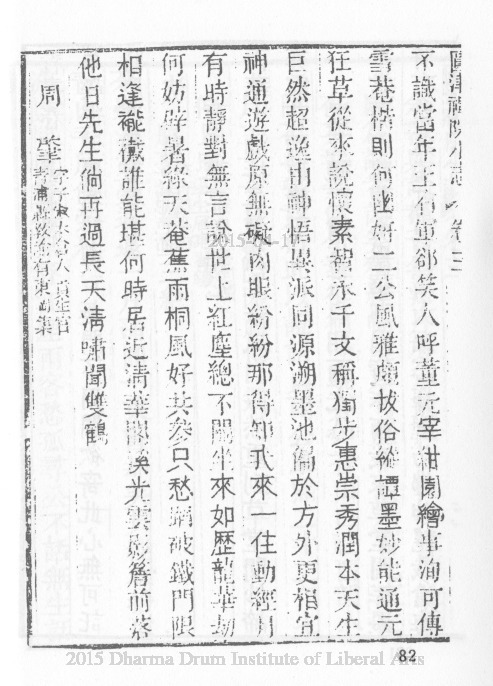 不識當年王右軍卻笑人呼董元宰紺園繪事洵可傳
雪巷楷則何幽好二公風雅頗拔俗縱譚墨妙能通元
狂草從來說懷素智永千文稱獨步惠崇秀潤本天生
巨然超逸由神悟異派同源溯墨池偏於方外更相宜
神通遊戲原無礙肉眼紛紛那得知我來一住動經月
有時靜對無言說世上紅塵總不關坐來如歷龍華劫
何妨辟暑綠天菴蕉雨桐風好共參只愁踏破鐵門限
相逢襤襶誰能堪何時居近清華閣溪光雲影簷前落
他日先生倘再過長天清嘯聞雙鶴
周肇
字子俶太倉人貢生官
青浦縣教諭有東岡集
82
2015 Dharma Drum Institute of Liberal Arts